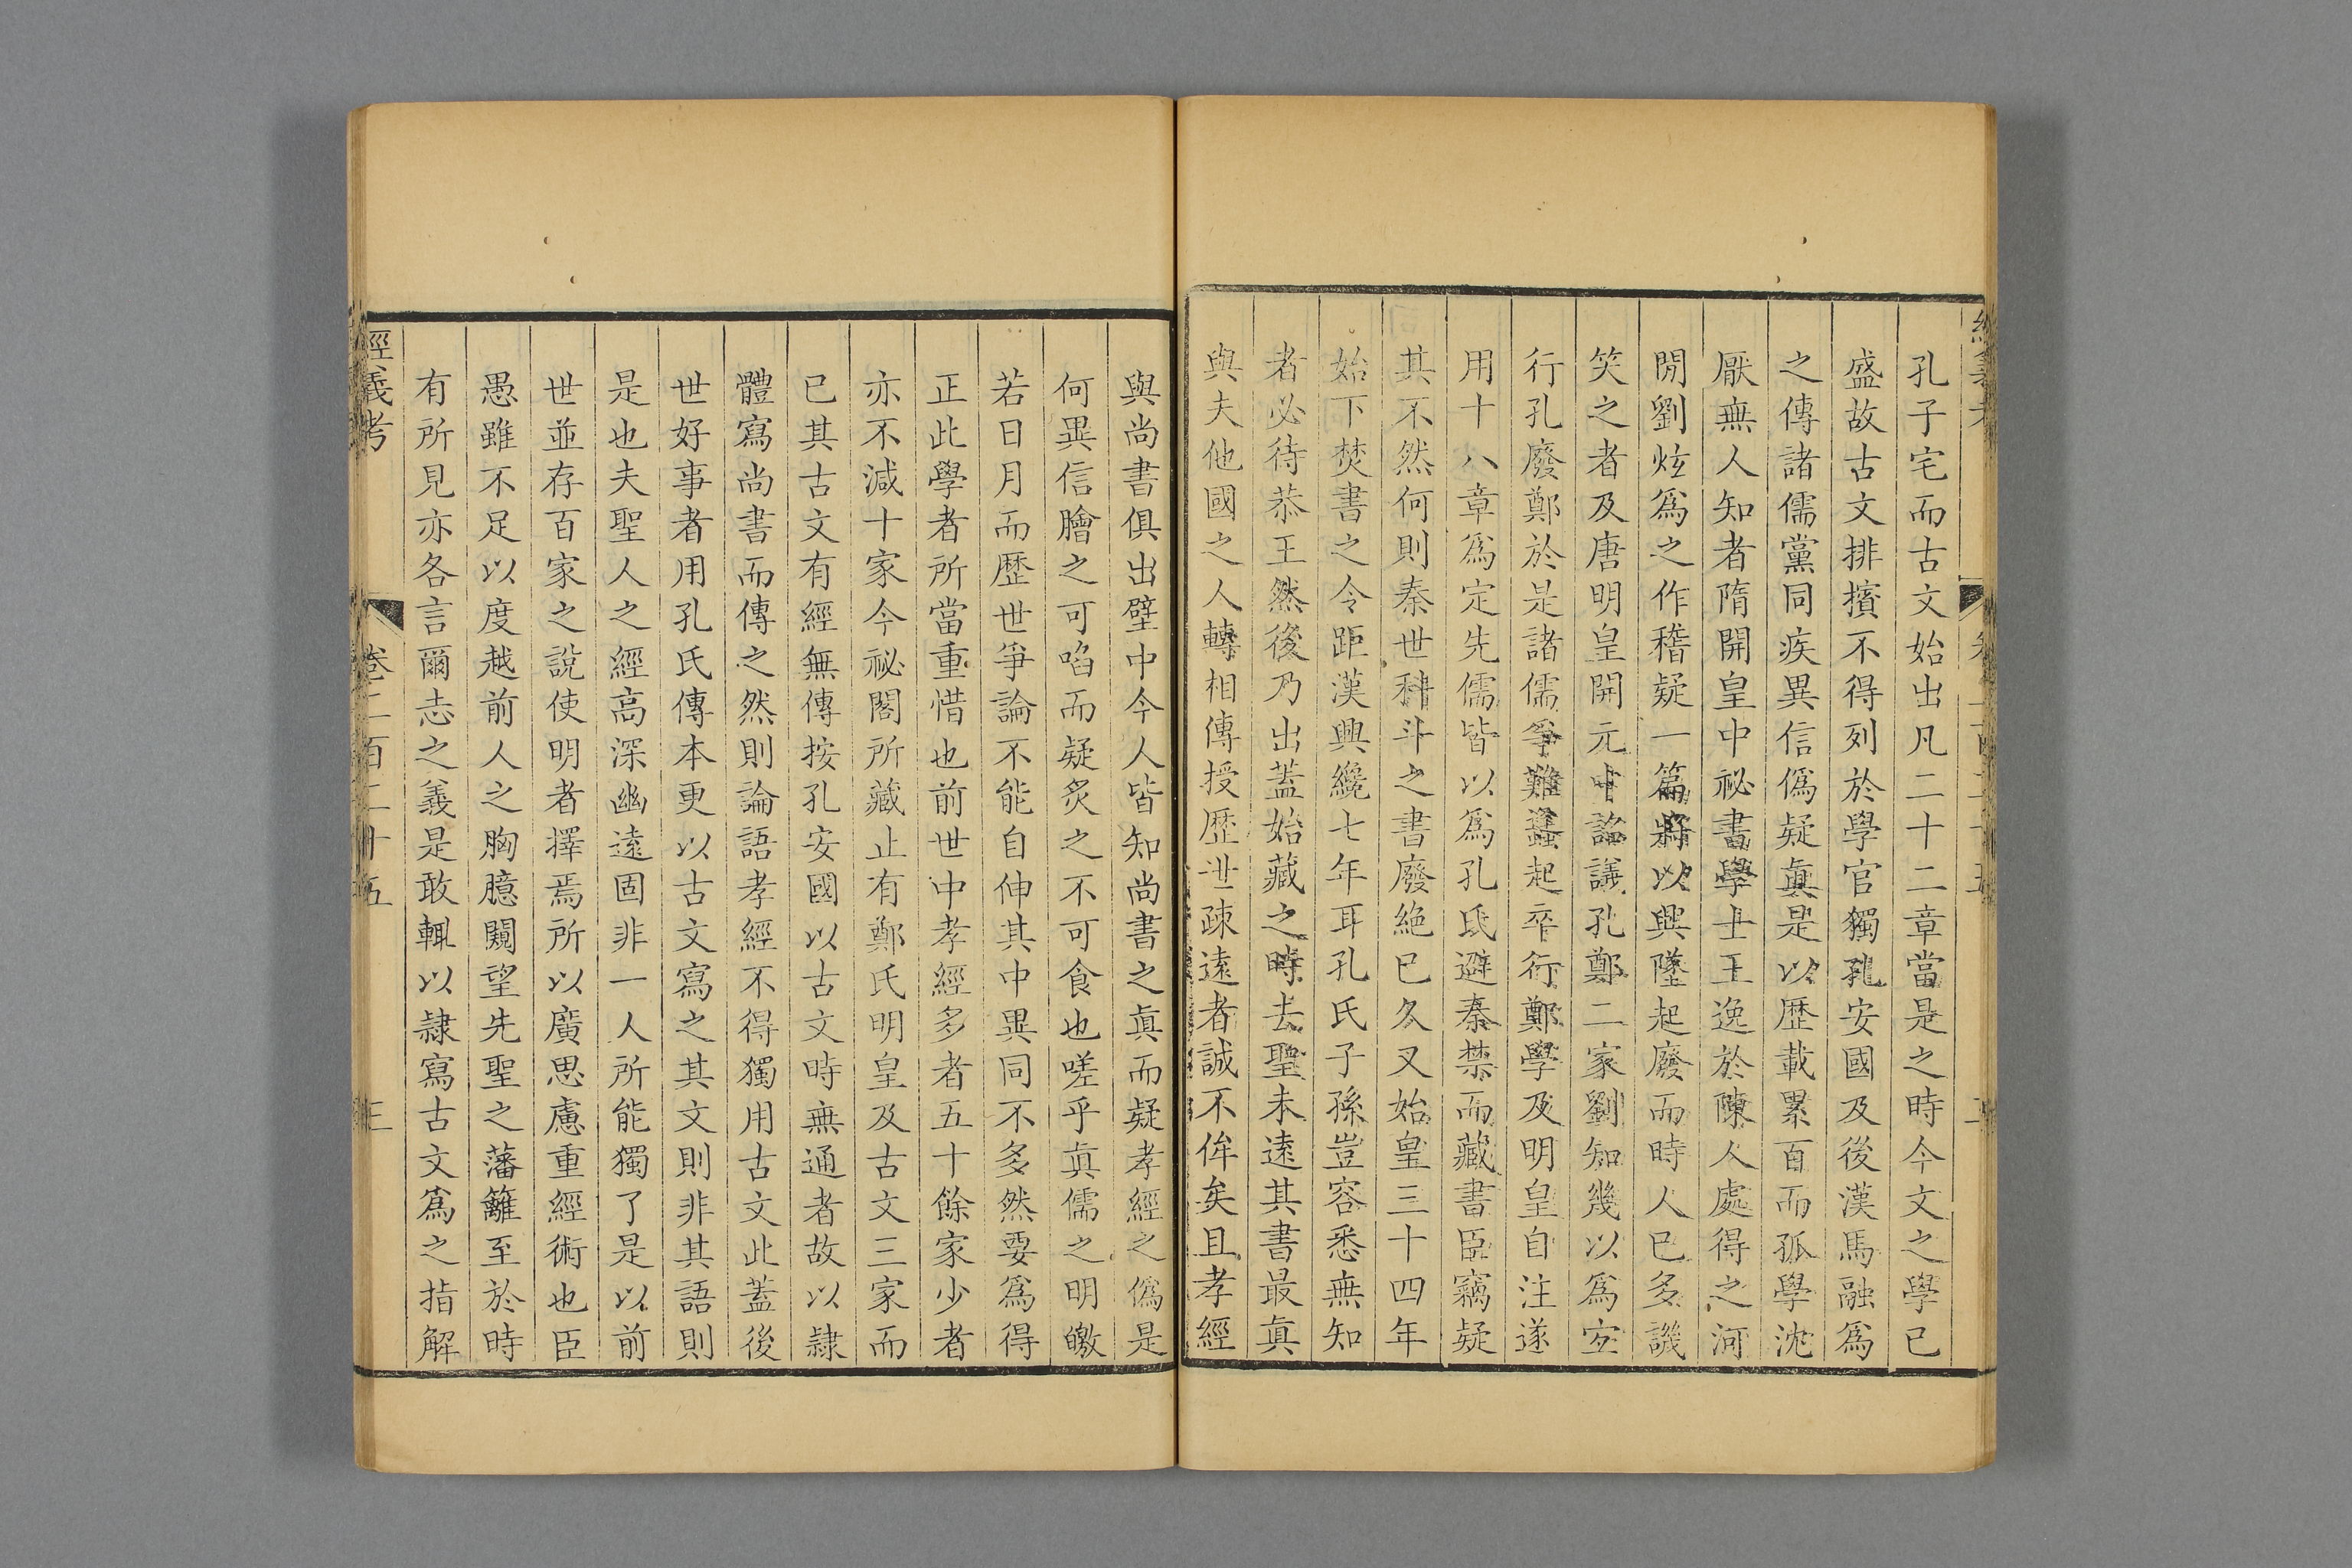 孔子宅而古文始出凡二十二章當是之時今文之學已
盛故古文排擯不得列於學官獨孔安國及後漢馬融爲
之傳諸儒黨同疾異信僞疑眞是以歷載累百而孤學沈
厭無人知者隋開皇中祕書學士王逸於陳人處得之河
閒劉炫爲之作稽疑一篇將以興墜起廢而時人已多譏
笑之者及唐明皇開元中詔議孔鄭二家劉知幾以爲宜
行孔廢鄭於是諸儒爭難蠭起卒行鄭學及明皇自注遂
用十八章爲定先儒皆以爲孔氏避秦禁而藏書臣竊疑
其不然何則秦世科斗之書廢絕已久又始皇三十四年
始下焚書之令距漢興纔七年耳孔氏子孫豈容悉無知
者必待恭王然後乃出蓋始藏之時去聖未遠其書最眞
與夫他國之人轉相傳授歷世疎遠者誠不侔矣且孝經
與尚書俱出壁中今人皆知尚書之眞而疑孝經之僞是
何異信膾之可啗而疑炙之不可食也嗟乎眞儒之明皦
若日月而歷世爭論不能自伸其中異同不多然要爲得
正此學者所當重惜也前世中孝經多者五十餘家少者
亦不減十家今祕閣所藏止有鄭氏明皇及古文三家而
已其古文有經無傳按孔安國以古文時無通者故以隸
體寫尚書而傳之然則論語孝經不得獨用古文此蓋後
世好事者用孔氏傳本更以古文寫之其文則非其語則
是也夫聖人之經高深幽遠固非一人所能獨了是以前
世並存百家之說使明者擇焉所以廣思慮重經術也臣
愚雖不足以度越前人之胸臆闚望先聖之藩籬至於時
有所見亦各言爾志之義是敢輒以隸寫古文爲之指解
經義考 卷二百二十五 三